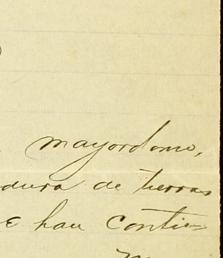 mayordomo,
dura de tierras
e han conti=